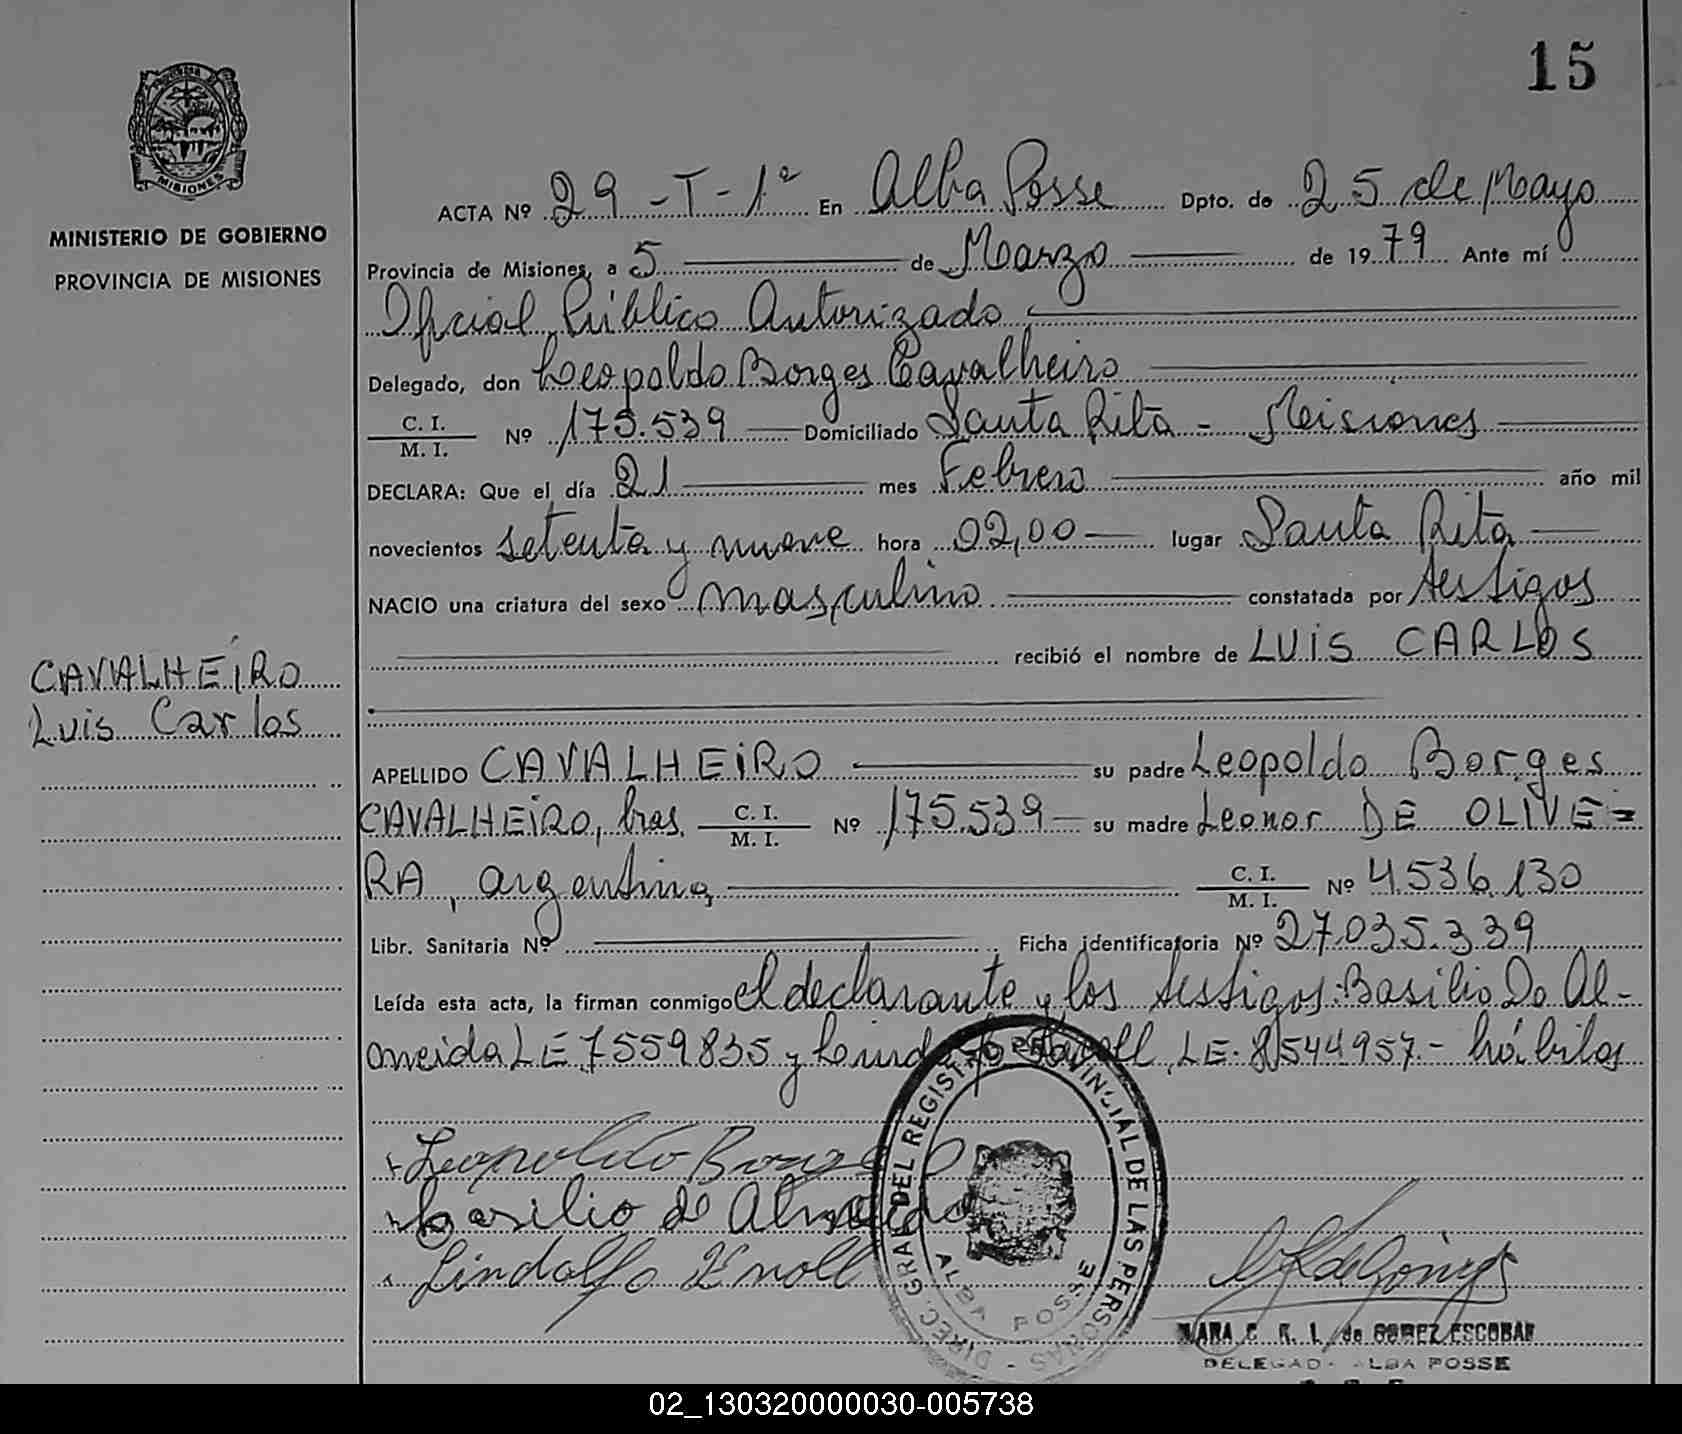 15
PROVINCIA DE
MISIONES
MINISTERIO DE GOBIERNO
PROVINCIA DE MISIONES
ACTA Nº 29 - T - 1º En Alba Posse Dpto. de 25 de Mayo
Provincia de Misiones, a 5 de Marzo de 1979 Ante mí
Oficial Público Autorizado
Delegado, don Leopoldo Borges Cavalheiro
C. I.
M. I. Nº 175.539 Domiciliado Santa Rita - Misiones
DECLARA: Que el día 21 mes Febrero año mil
novecientos setenta y nueve hora 02,00 lugar Santa Rita
NACIO una criatura del sexo masculino constatada por testigos
recibió el nombre de LUIS CARLOS
CAVALHEIRO
Luis Carlos
APELLIDO CAVALHEIRO su padre Leopoldo Borges
CAVALHEIRO, bras. C. I. M. I. Nº 175.539 su madre Leonor DE OLIVE=
RA, argentina, C. I. M. I. Nº 4.536.130
Libr. Sanitaria Nº Ficha identificatoria Nº 27.035.339
Leída esta acta, la firman conmigo el declarante y los testigos: Basilio Do Al-
meida LE 7559835 y Lindolfo Knoll, LE. 8544957.- hábiles
Leopoldo Borges
Basilio de Almeida
Lindolfo Knoll
DIREC. GRAL. DEL REGISTRO PROVINCIAL DE LAS PERSONAS -
ALBA POSSE
MARA C. R. L. de GOMEZ ESCOBAR
DELEGAD- ALBA POSSE
02_130320000030-005738